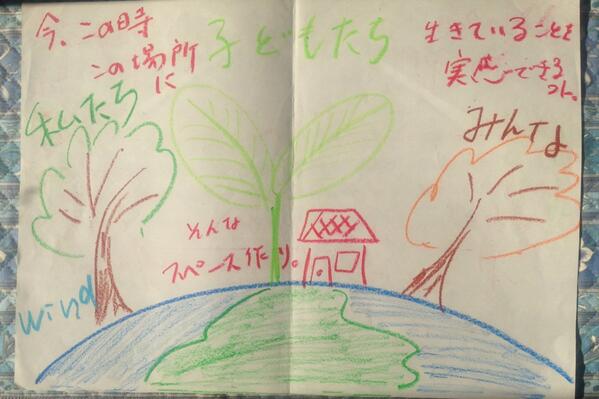 今、この時
この場所
に
子どもたち
生きていることを
実感できる
コト。
私たち
みんな
そんな
スペース作り。
wind